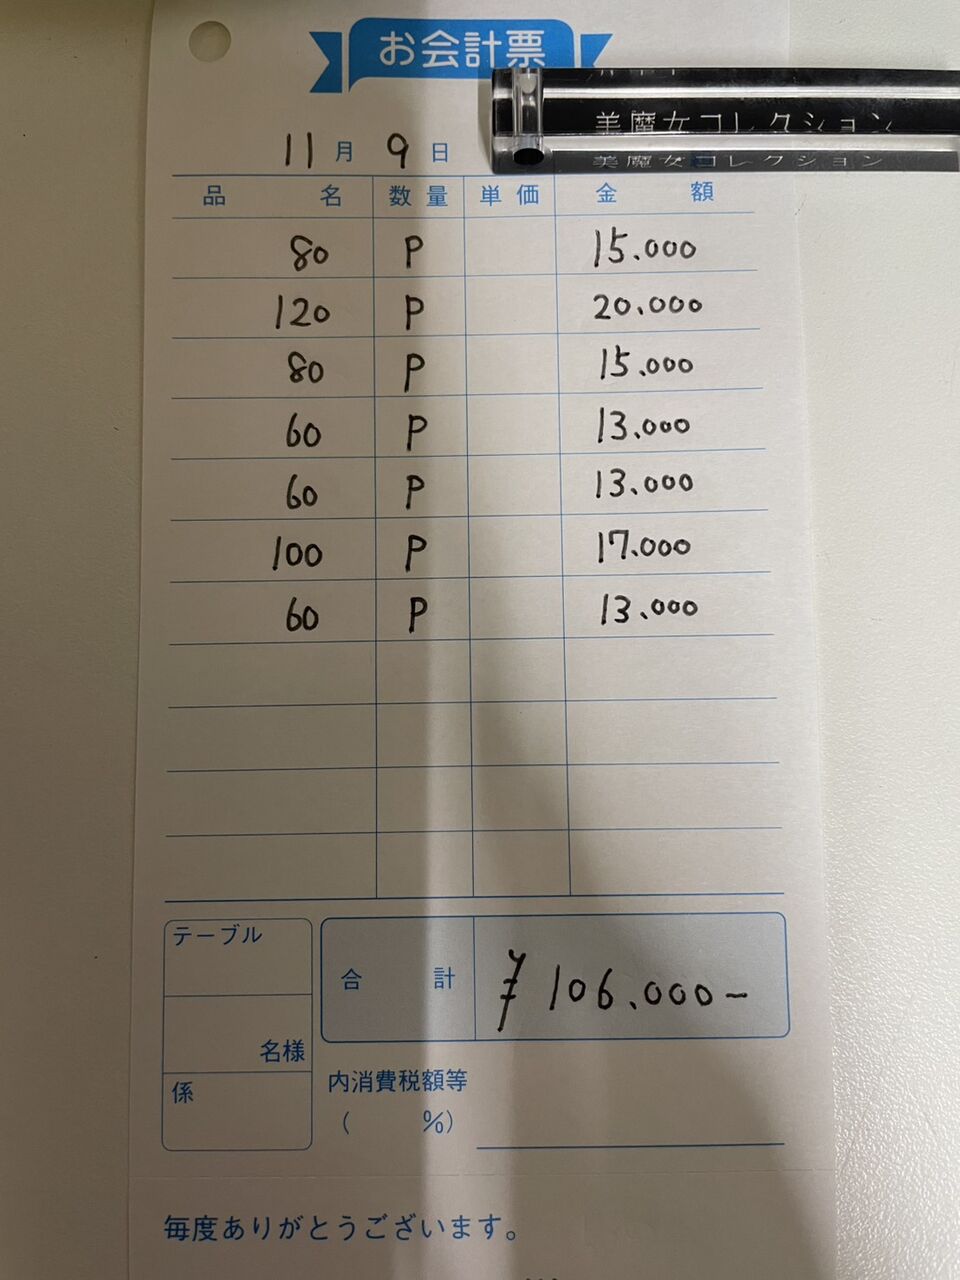 お会計票
美魔女コレクション
美魔女コレクション
11月 9日
品名 数量 単価 金額
80 P 15.000
120 P 20.000
80 P 15.000
60 P 13.000
60 P 13.000
100 P 17.000
60 P 13.000
テーブル
合計 ¥106.000-
名様
係
内消費税額等
( %)
毎度ありがとうございます。